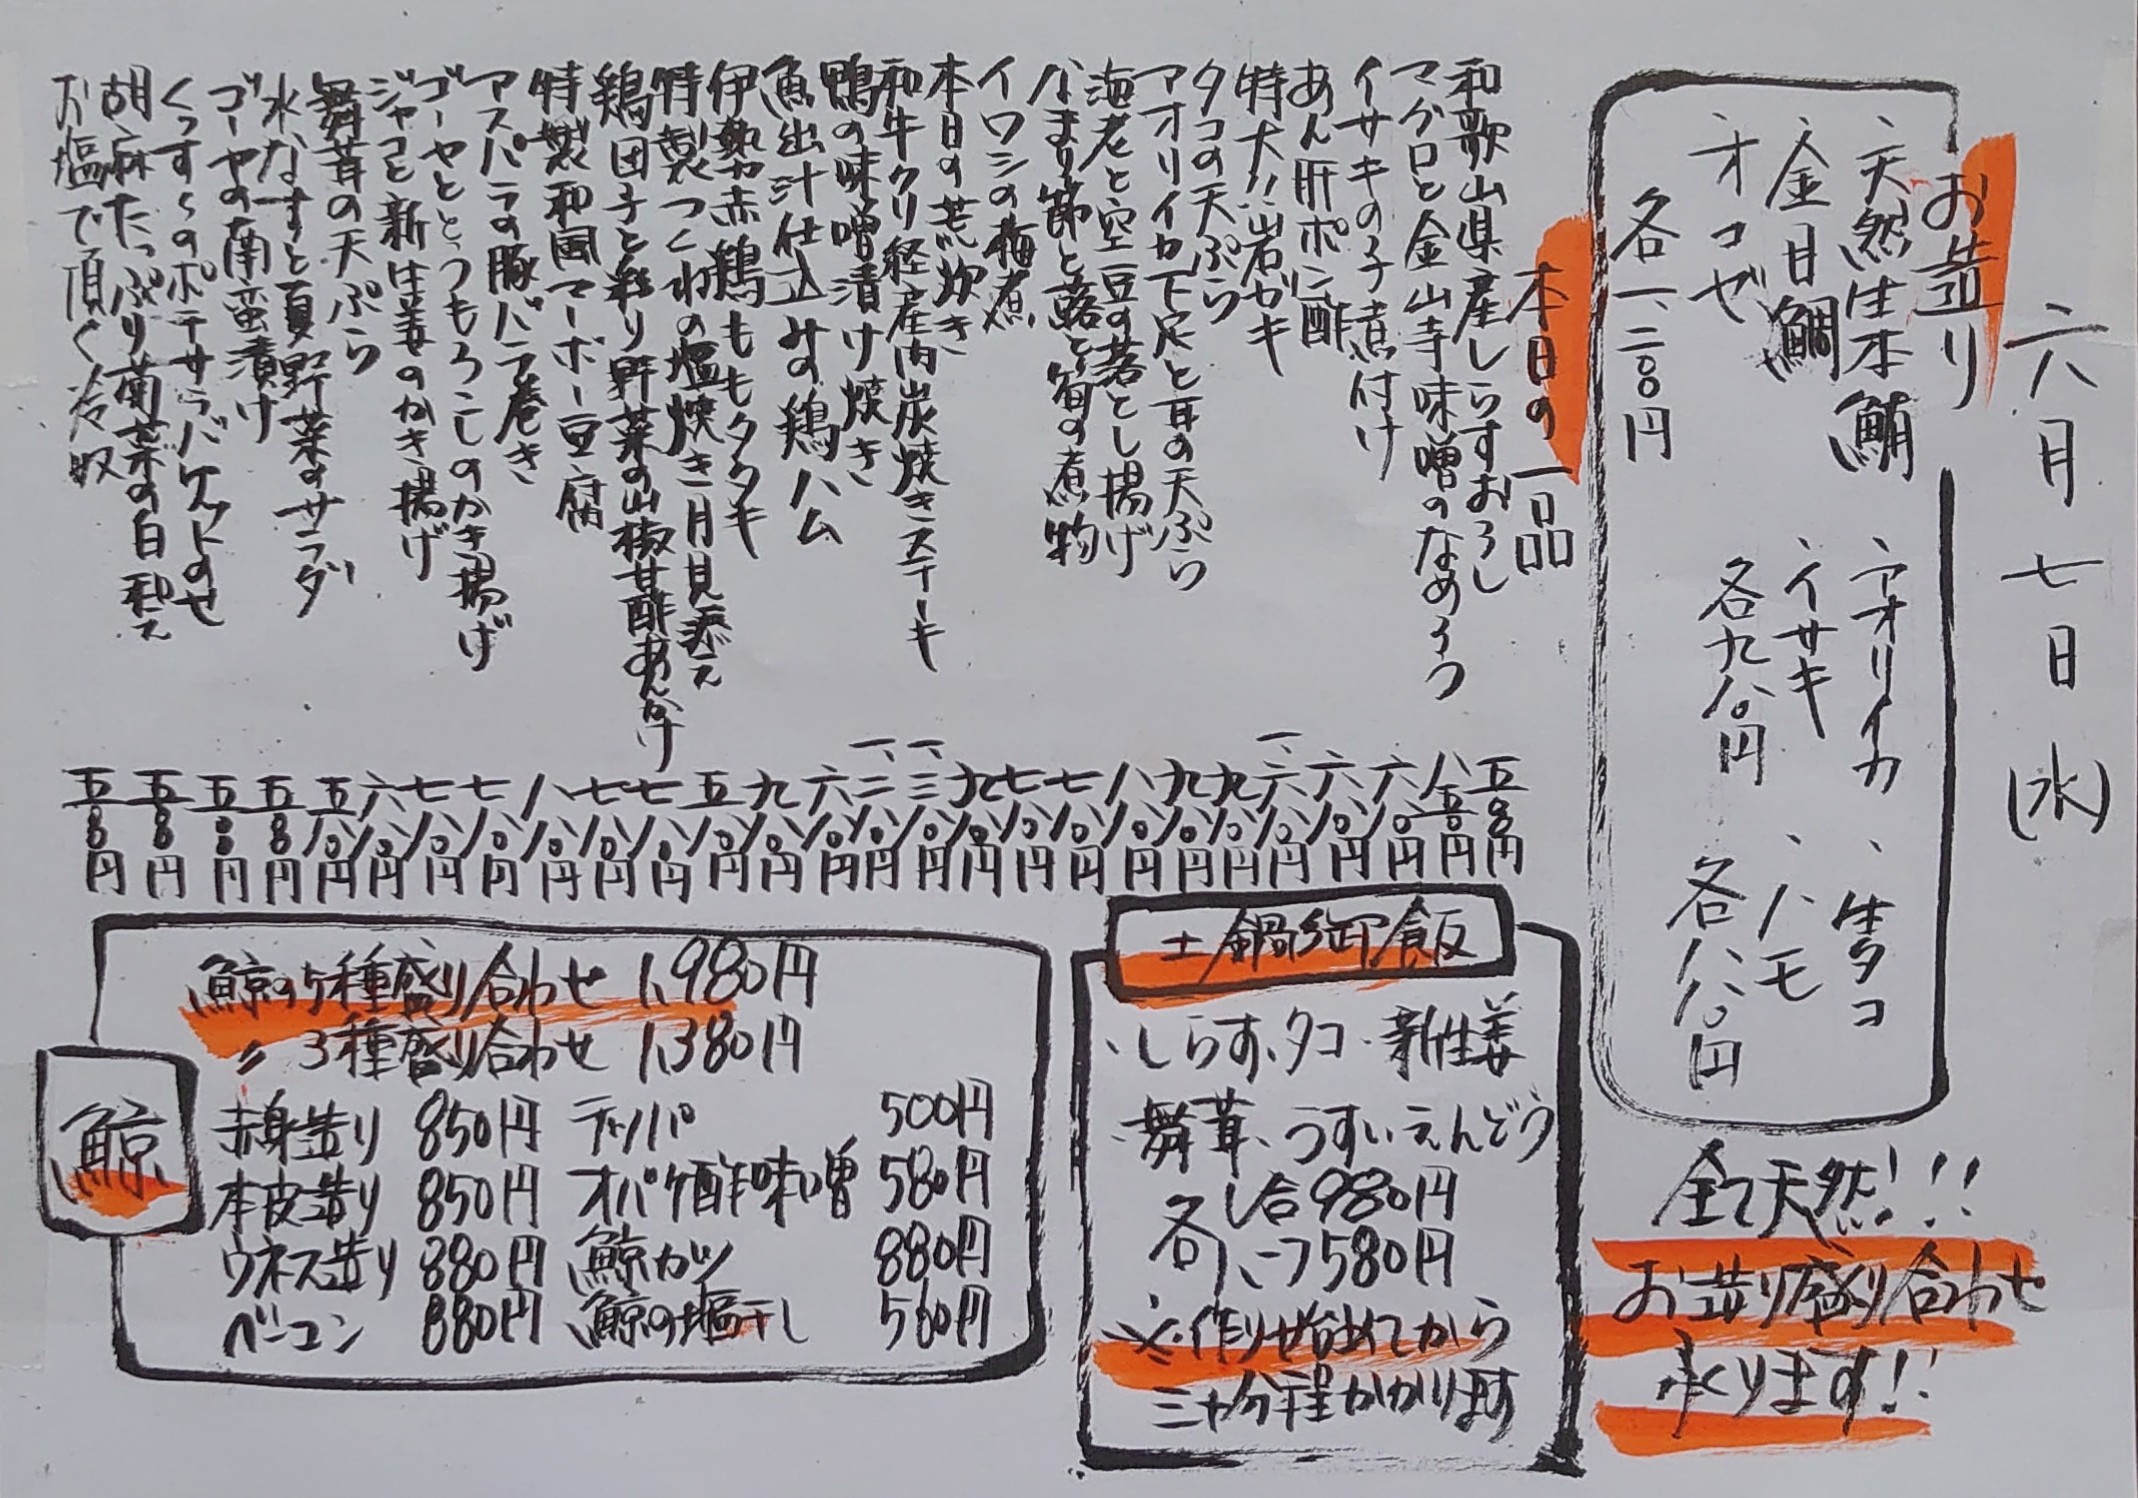 六月七日(水)
お造り
、天然生本鮪
、金目鯛
、オコゼ
各一、二〇〇円
、アオリイカ
、イサキ
各九八〇円
、生タコ
、ハモ
各八八〇円
全て天然!!!
お造り盛り合わせ
承ります!!
本日の一品
和歌山県産しらすおろし 五〇〇円
マグロと金山寺味噌のなめろう 八五〇円
イサキの子煮付け 六八〇円
あん肝ポン酢 六八〇円
特大!!岩ガキ 一、六八〇円
タコの天ぷら 九八〇円
アオリイカ下足と耳の天ぷら 九八〇円
海老と空豆の落とし揚げ 八八〇円
なまり節と蕗と筍の煮物 七八〇円
イワシの梅煮 七八〇円
本日の荒炊き 九八〇円
和牛クリ経産肉炭焼きステーキ 一、三八〇円
鴨の味噌漬け焼き 一、二八〇円
魚出汁仕込みの鶏ハム 六八〇円
伊勢赤鶏ももタタキ 九八〇円
特製つくねの塩焼き月見添え 五八〇円
鶏団子と彩り野菜の山椒甘酢あんかけ 七八〇円
特製和風マーボー豆腐 七八〇円
アスパラの豚バラ巻き 八八〇円
ゴーヤととうもろこしのかき揚げ 七八〇円
ジャコと新生姜のかき揚げ 七八〇円
舞茸の天ぷら 六八〇円
水なすと夏野菜のサラダ 五八〇円
ゴーヤの南蛮漬け 五〇〇円
くっすくのポテサラバケットのせ 五〇〇円
胡麻たっぷり菊菜の白和え 五〇〇円
お塩で頂く冷奴 五〇〇円
土鍋御飯
、しらす、タコ、新生姜
、舞茸、うすいえんどう
各一合980円
各ハーフ580円
※作り始めてから
三十分程かかります
鯨
鯨の5種盛り合わせ 1,980円
〃 3種盛り合わせ 1,380円
赤身造り 850円 テッパ 500円
本皮造り 850円 オバケ酢味噌 580円
ウネス造り 880円 鯨カツ 880円
ベーコン 880円 鯨の塩干し 560円